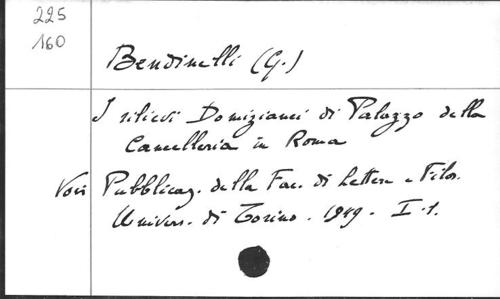 225
160
Bendinelli (G.)
I rilievi Domizianei di Palazzo della
Cancelleria in Roma
Voir Pubblicaz. della Fac. di Lettere e Filos.
Univers. di Torino. 1949. I.1.